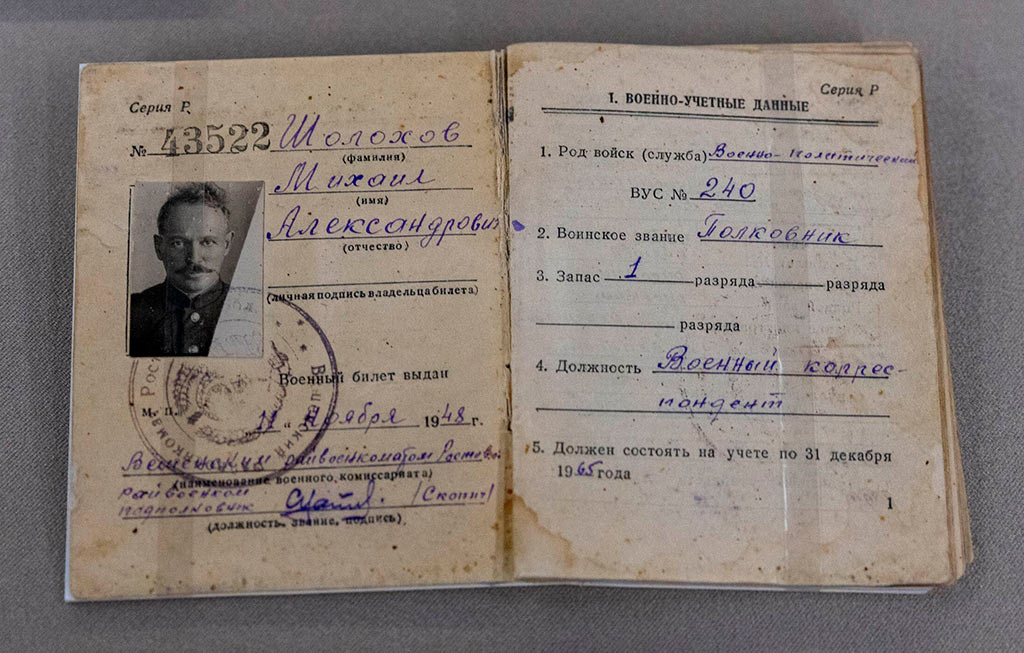 Серия Р.
№ 43522 Шолохов
(фамилия)
Михаил
(имя)
Александрович
(отчество)
(личная подпись владельца билета)
Военный билет выдан
М. П.
11 " ноября 1948 г.
Вешенским райвоенкоматом
(наименование военного, комиссариата)
Райвоенком
подполковник /Скопин/
(должность, звание, подпись)
Серия Р
I. ВОЕННО-УЧЕТНЫЕ ДАННЫЕ
1. Род войск (служба) Военно-политический
ВУС № 240
2. Воинское звание Полковник
3. Запас 1 разряда разряда
разряда
4. Должность Военный коррес-
пондент
5. Должен состоять на учете по 31 декабря
1965 года
1